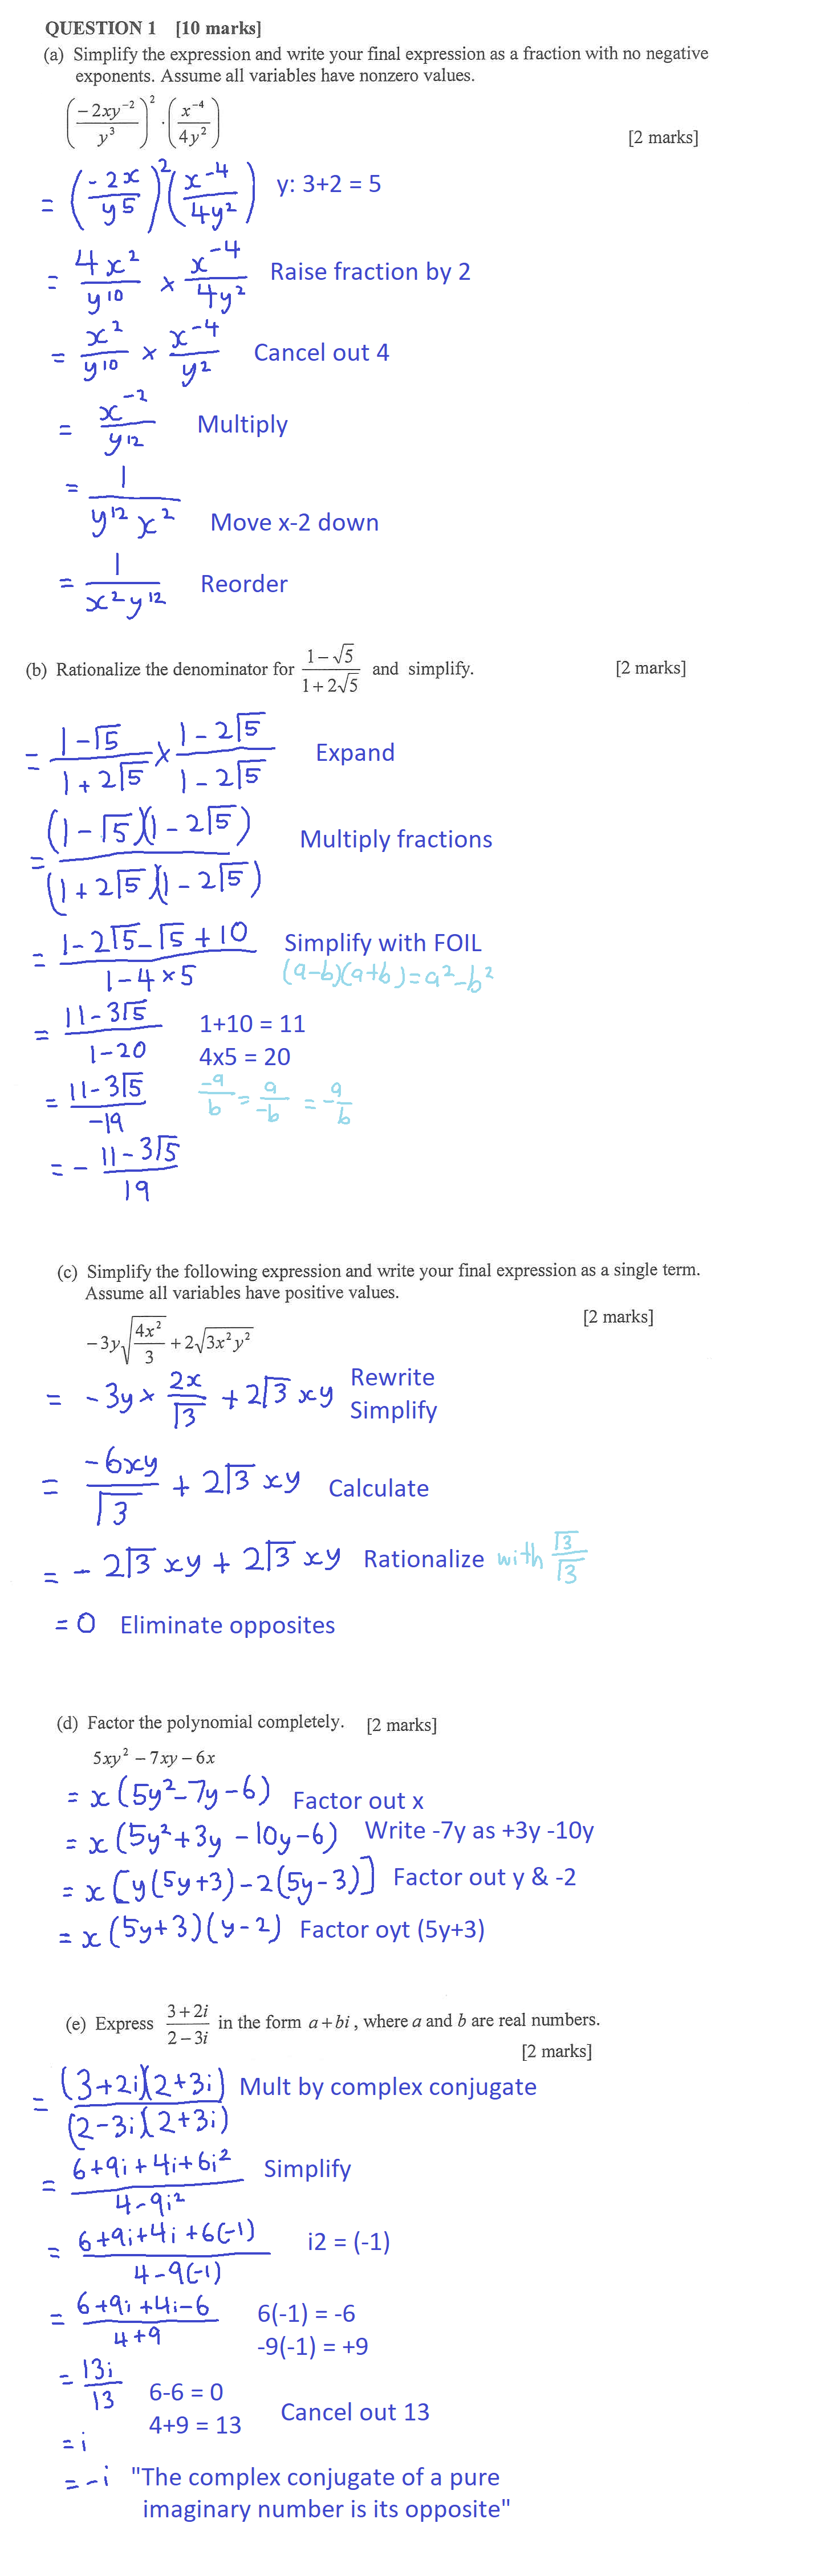 QUESTION 1 [10 marks]
(a) Simplify the expression and write your final expression as a fraction with no negative
exponents. Assume all variables have nonzero values.
(−2xy⁻²/y³)² · (x⁻⁴/4y²)
[2 marks]
= (-2x/y5)² (x⁻⁴/4y²) y: 3+2 = 5
= 4x²/y¹⁰ × x⁻⁴/4y² Raise fraction by 2
= x²/y¹⁰ × x⁻⁴/y² Cancel out 4
= x⁻²/y¹² Multiply
= 1/y¹²x² Move x-2 down
= 1/x²y¹² Reorder
(b) Rationalize the denominator for (1−√5)/(1+2√5) and simplify. [2 marks]
= (1-√5)/(1+2√5) × (1-2√5)/(1-2√5) Expand
= (1-√5)(1-2√5)/(1+2√5)(1-2√5) Multiply fractions
= (1-2√5-√5+10)/(1-4×5) Simplify with FOIL
(a-b)(a+b)=a²-b²
= (11-3√5)/(1-20) 1+10 = 11
4x5 = 20
= (11-3√5)/-19 -a/b = a/-b = -a/b
= - (11-3√5)/19
(c) Simplify the following expression and write your final expression as a single term.
Assume all variables have positive values.
[2 marks]
−3y√(4x²/3) + 2√(3x²y²)
= -3y × 2x/√3 + 2√3 xy Rewrite
Simplify
= -6xy/√3 + 2√3 xy Calculate
= - 2√3 xy + 2√3 xy Rationalize with √3/√3
= 0 Eliminate opposites
(d) Factor the polynomial completely. [2 marks]
5xy² − 7xy − 6x
= x(5y²-7y-6) Factor out x
= x(5y²+3y-10y-6) Write -7y as +3y -10y
= x[y(5y+3)-2(5y-3)] Factor out y & -2
= x(5y+3)(y-2) Factor oyt (5y+3)
(e) Express (3+2i)/(2−3i) in the form a+bi, where a and b are real numbers.
[2 marks]
= (3+2i)(2+3i)/(2-3i)(2+3i) Mult by complex conjugate
= (6+9i+4i+6i²)/(4-9i²) Simplify
= (6+9i+4i+6(-1))/(4-9(-1)) i2 = (-1)
= (6+9i+4i-6)/(4+9) 6(-1) = -6
-9(-1) = +9
= 13i/13 6-6 = 0
4+9 = 13 Cancel out 13
= i
= -i "The complex conjugate of a pure
imaginary number is its opposite"